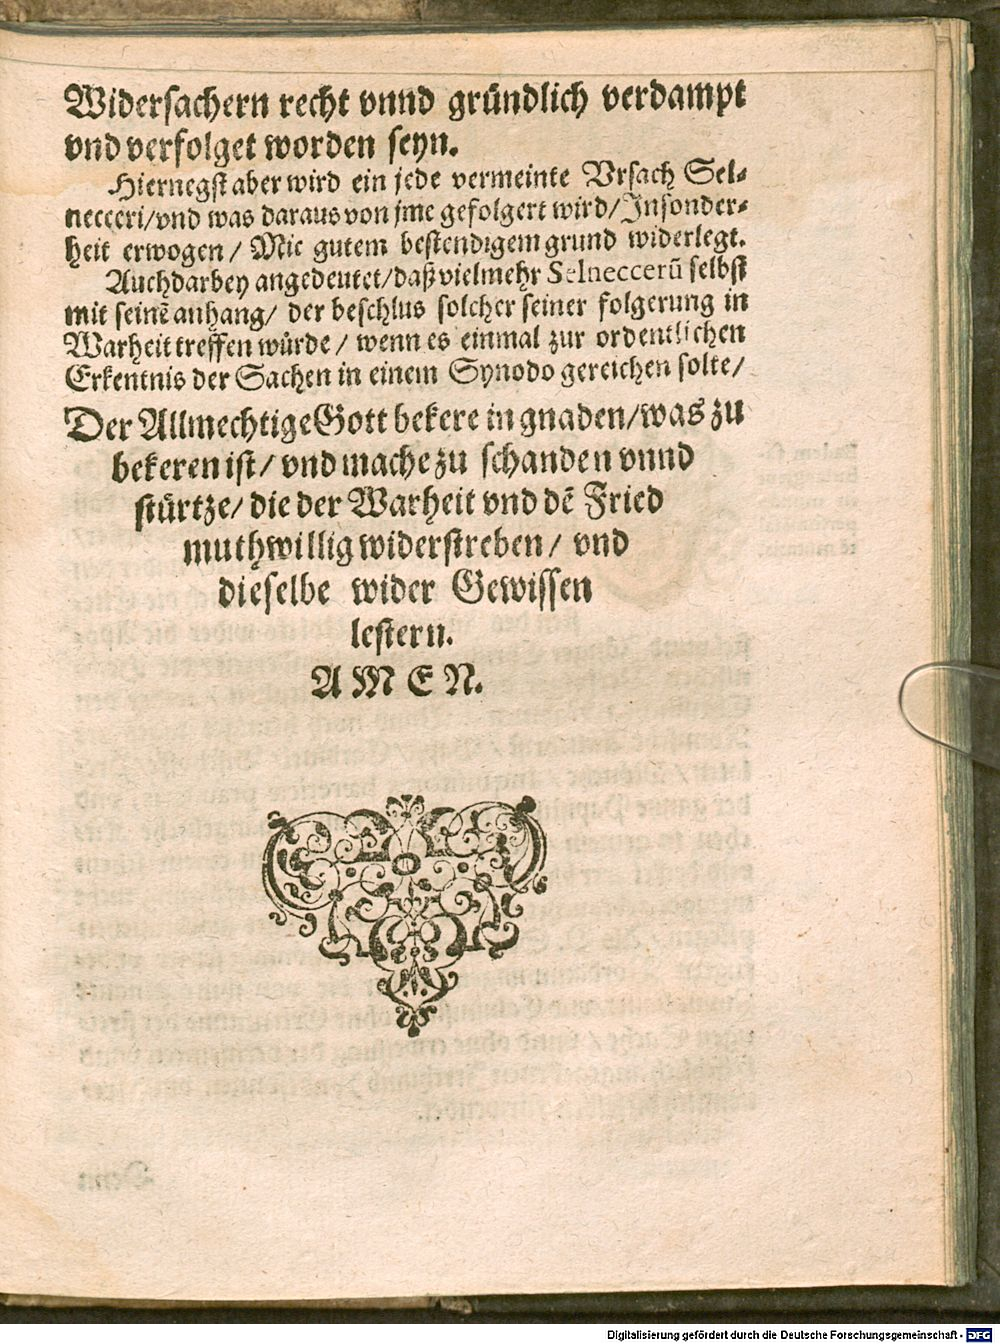 Widersachern recht vnnd gründlich verdampt
vnd verfolget worden seyn.
Hiernegst aber wird ein jede vermeinte Vrsach Sel-
necceri/vnd was daraus von jme gefolgert wird/Insonder-
heit erwogen/ Mit gutem bestendigem grund widerlegt.
Auch darbey angedeutet/daß vielmehr Selneccerū selbst
mit seinē anhang/ der beschlus solcher seiner folgerung in
Warheit treffen würde/ wenn es einmal zur ordentlichen
Erkentnis der Sachen in einem Synodo gereichen solte/
Der Allmechtige Gott bekere in gnaden/was zu
bekeren ist/ vnd mache zu schanden vnnd
stürtze/ die der Warheit vnd dē Fried
muthwillig widerstreben/ vnd
dieselbe wider Gewissen
lestern.
A M E N.
Digitalisierung gefördert durch die Deutsche Forschungsgemeinschaft - DFG